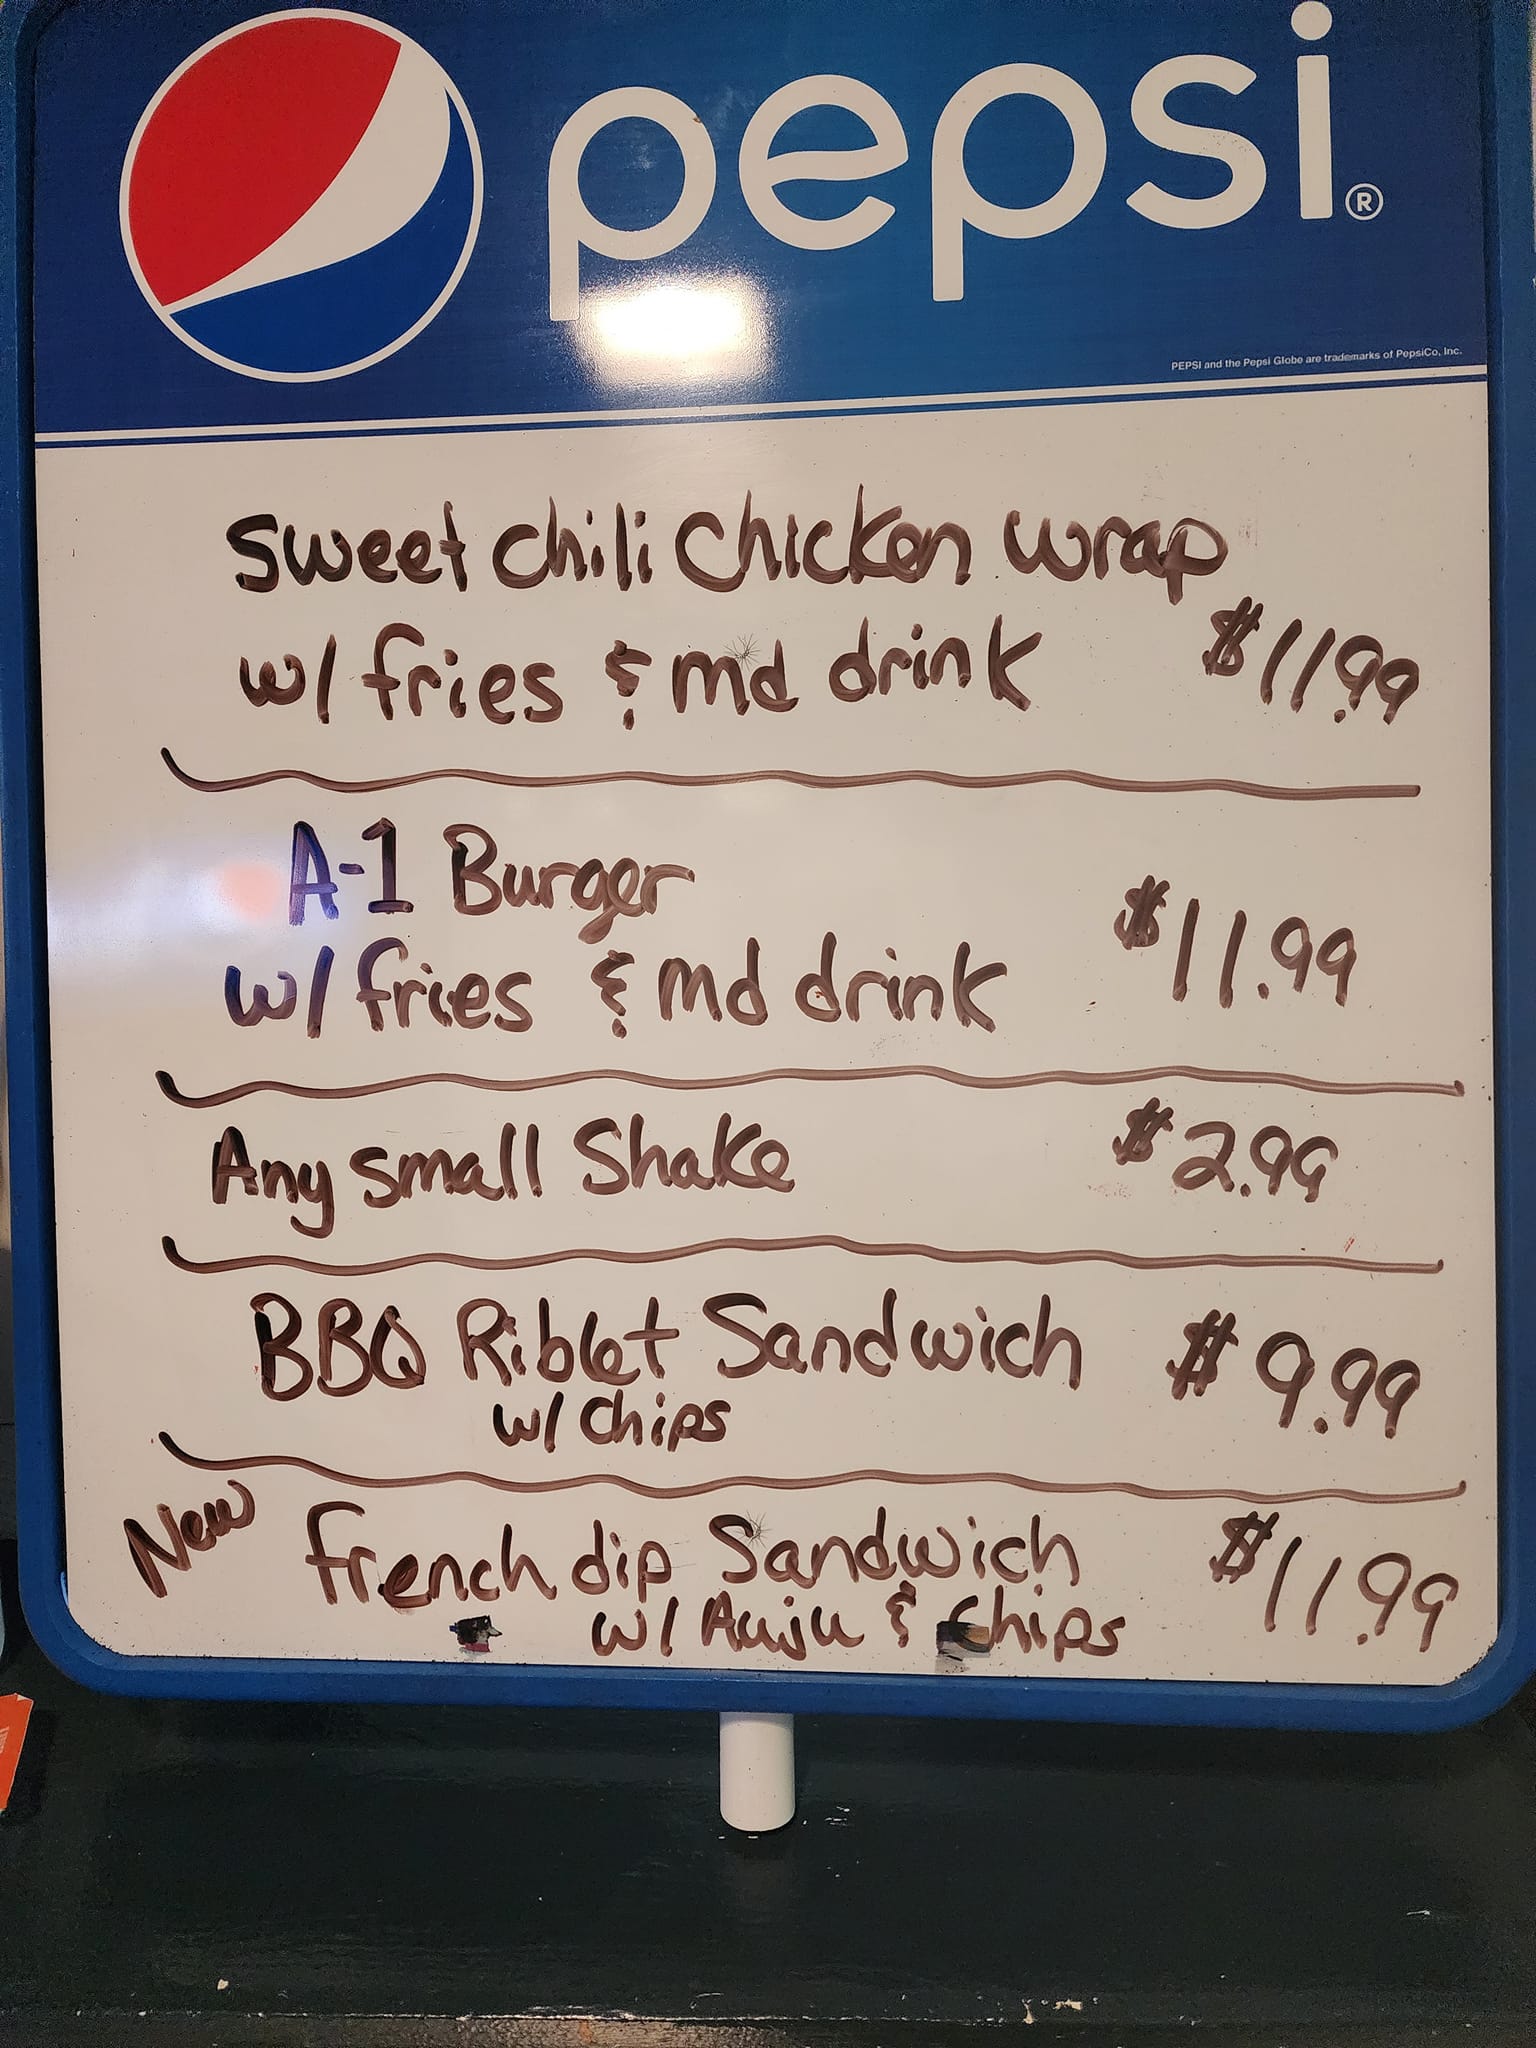 pepsi®
PEPSI and the Pepsi Globe are trademarks of PepsiCo, Inc.
Sweet chili Chicken wrap
w/ fries & md drink $11.99
A-1 Burger
w/ fries & md drink $11.99
Any small Shake $2.99
BBQ Riblet Sandwich $9.99
w/ Chips
New French dip Sandwich $11.99
w/ Auju & Chips